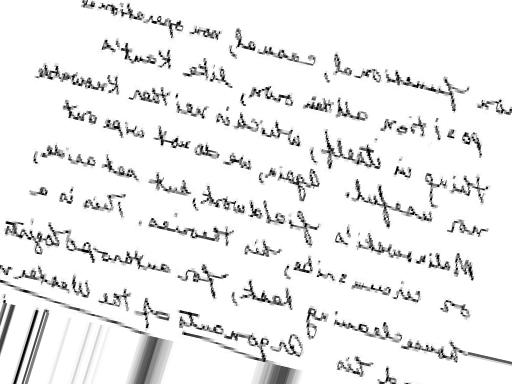 nor functional, causal, nor operational
position all his own, like Kant's
thing in itself, which is neither knowable
nor useful. Again, we do not wipe out
Malinowski's fieldwork, but set aside,
or circumscribe, his theories. This is a
housecleaning task, for anthropologists
Argonauts of the Western